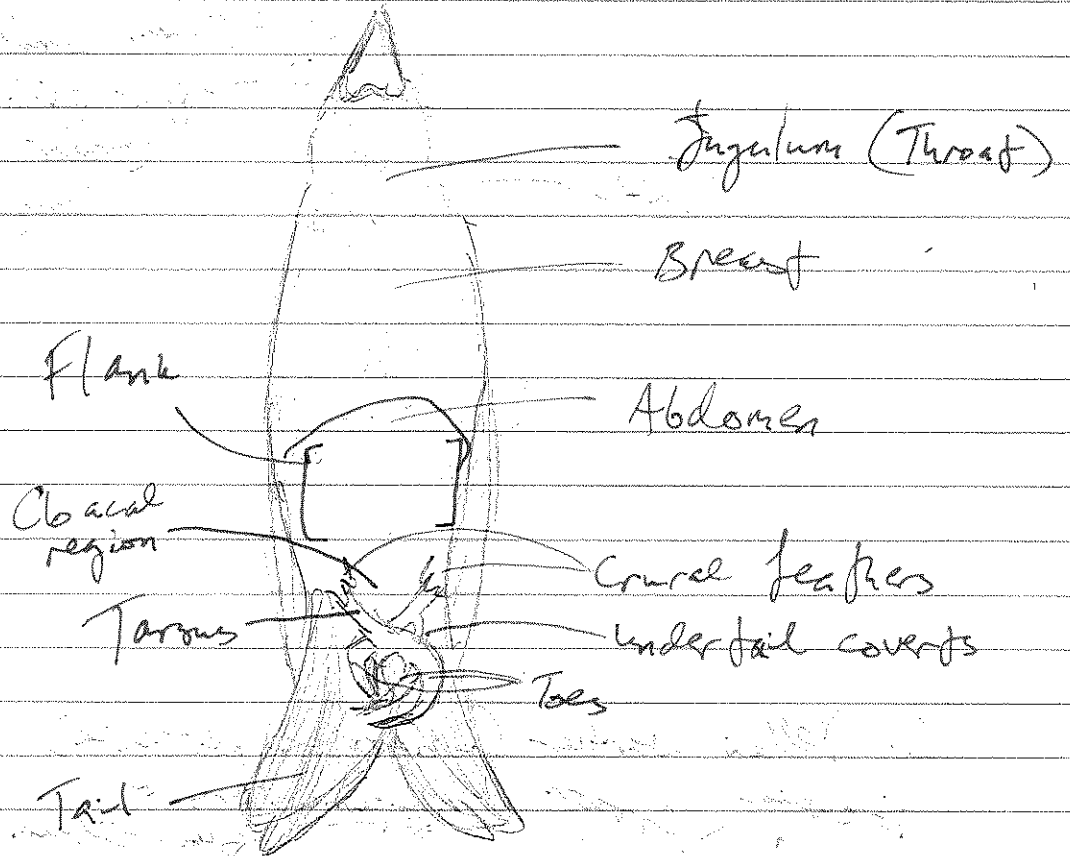 Jugulum (Throat)
Breast
Flank
Abdomen
Cloacal
region
Crural feathers
Tarsus
undertail coverts
Toes
Tail